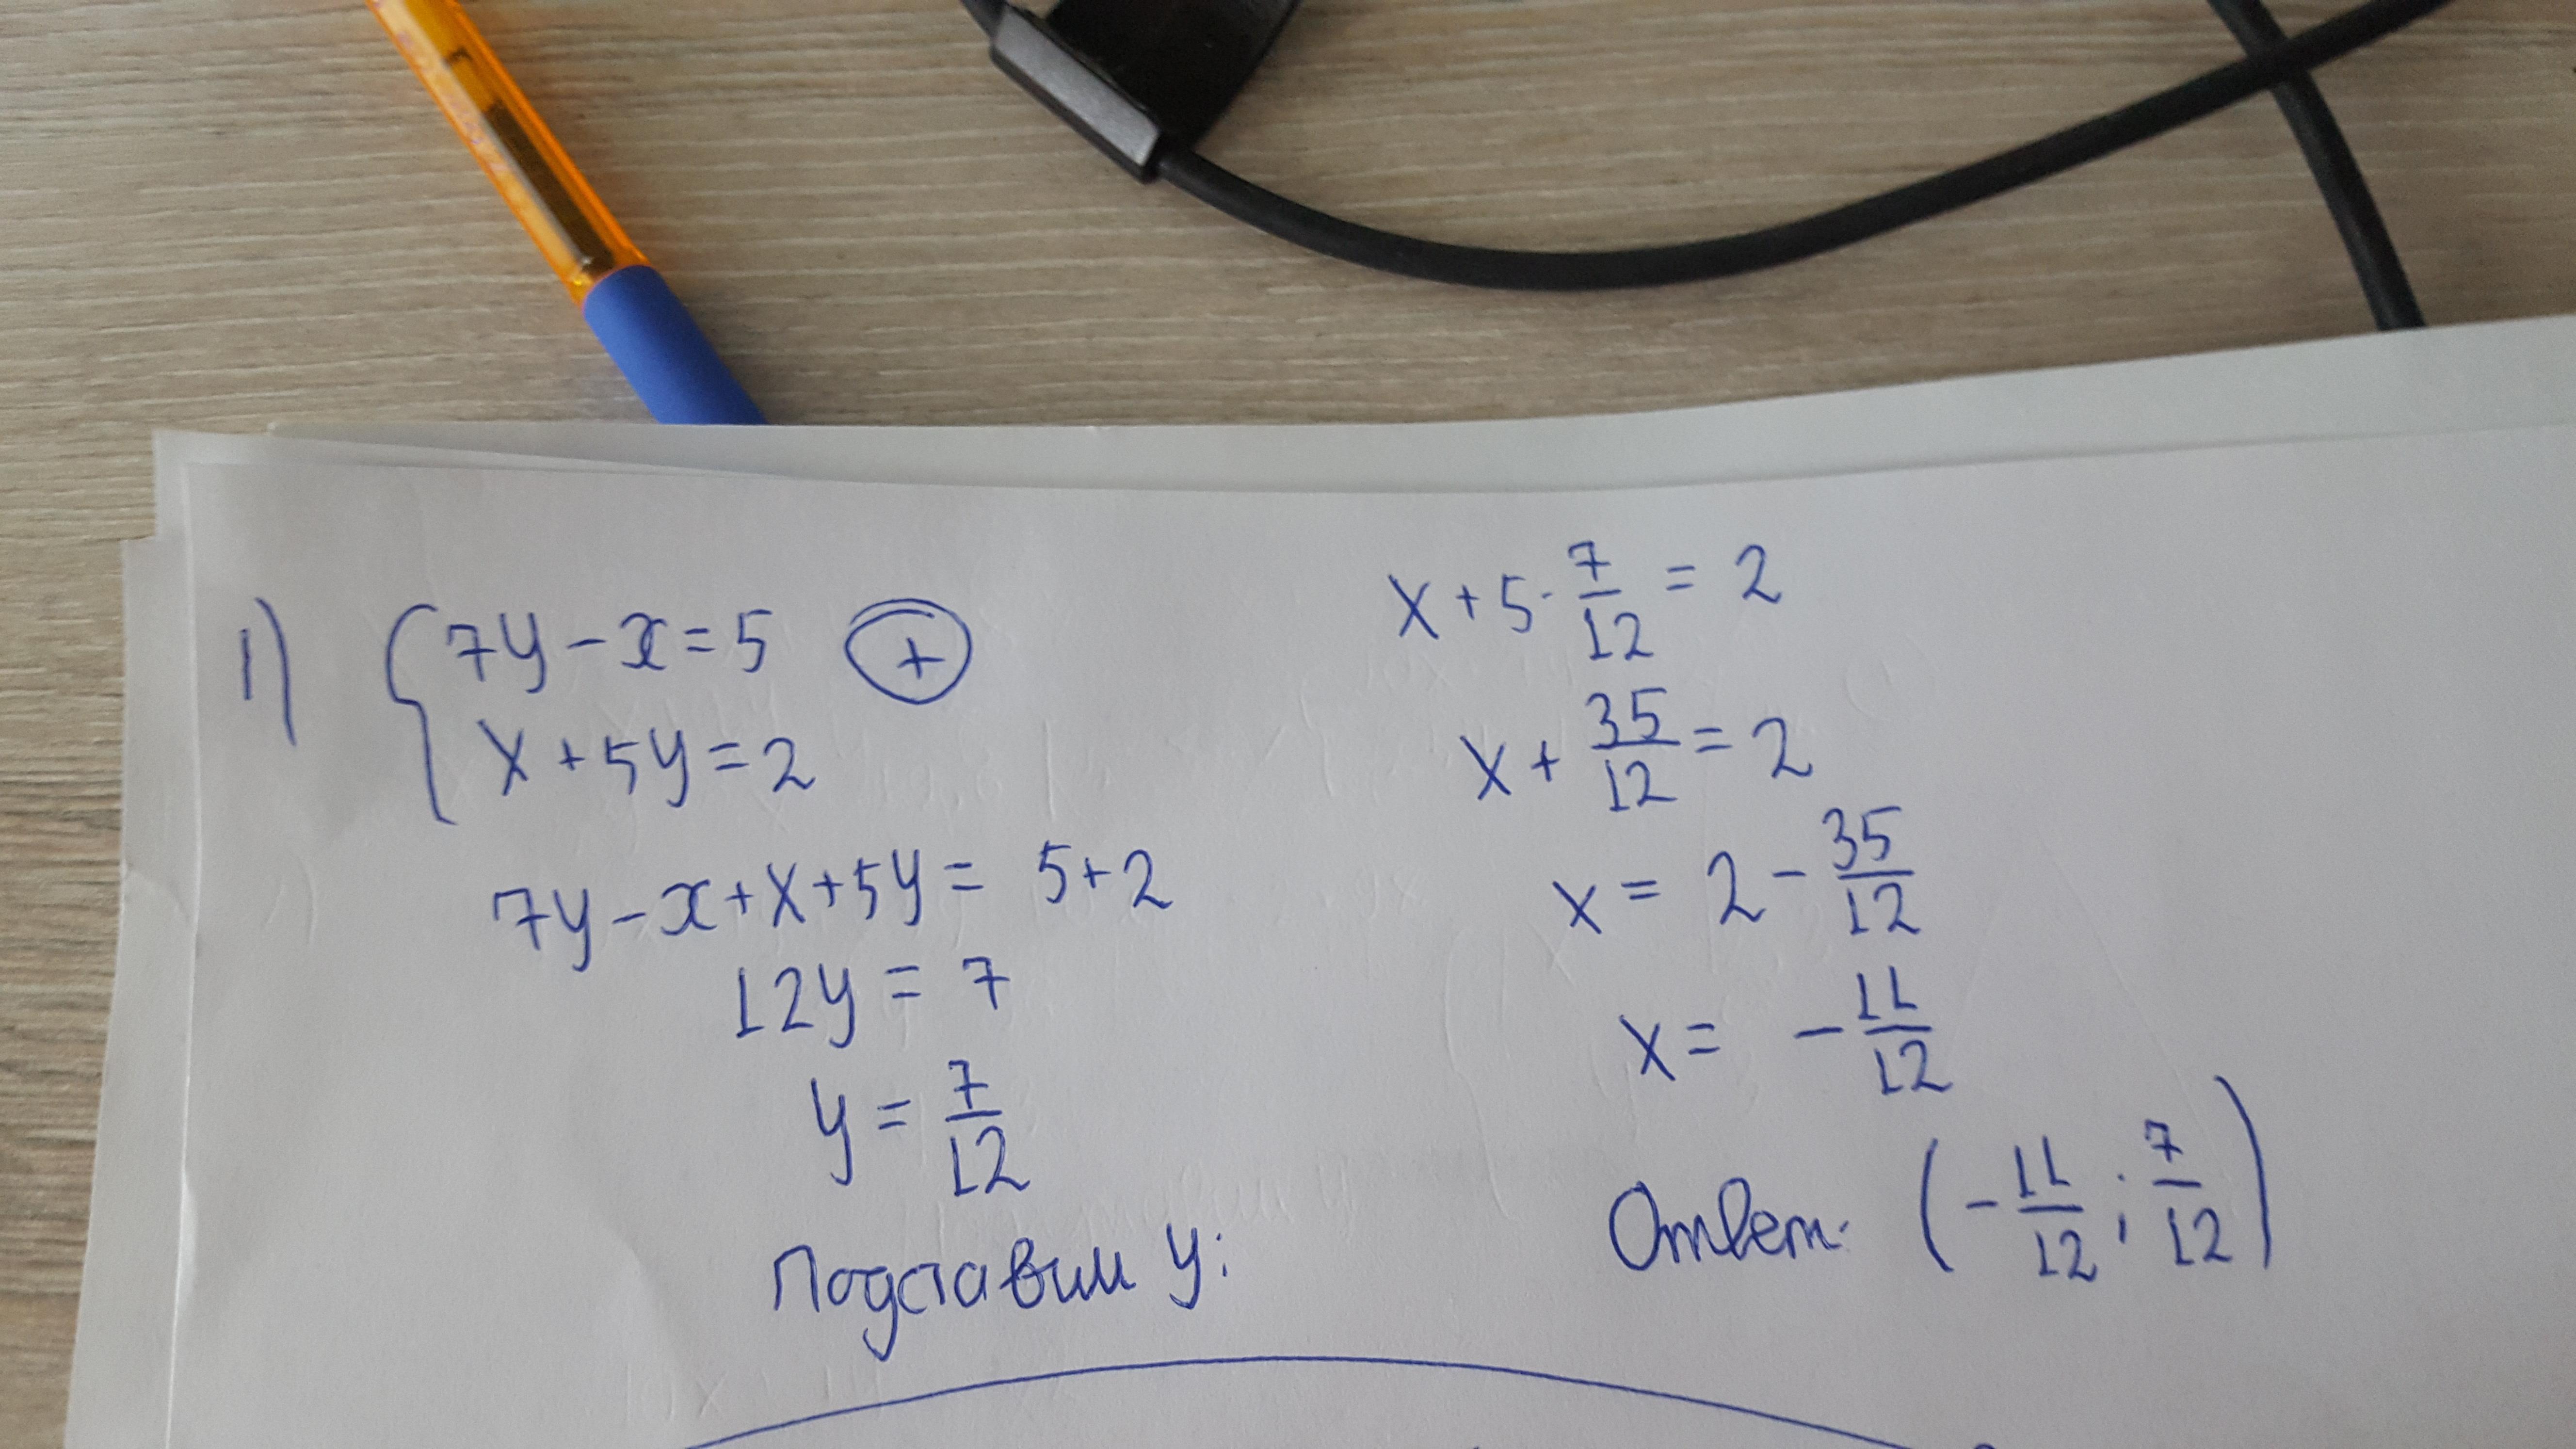 1) { 7y - x = 5 (+)
x + 5y = 2
7y - x + x + 5y = 5 + 2
12y = 7
y = 7/12
Подставим y:
x + 5 · 7/12 = 2
x + 35/12 = 2
x = 2 - 35/12
x = - 11/12
Ответ. (- 11/12 ; 7/12)